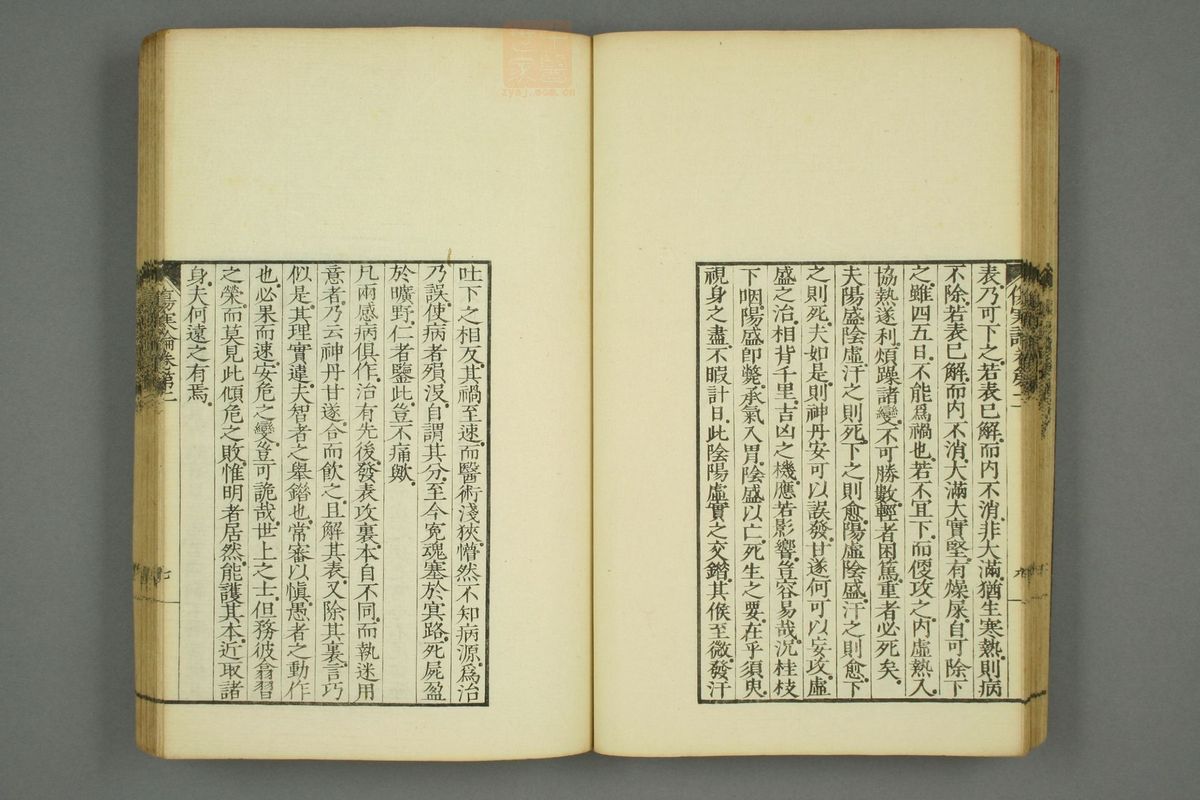 表乃可下之若表已解而内不消非大滿猶生寒熱則病
不除若表已解而内不消大滿大實堅有燥屎自可除下
之雖四五日不能爲禍也若不宜下而便攻之内虛熱入
協熱遂利煩躁諸變不可勝數輕者困篤重者必死矣
夫陽盛陰虛汗之則死下之則愈陽虛陰盛汗之則愈下
之則死夫如是則神丹安可以誤發甘遂何可以妄攻虛
盛之治相背千里吉凶之機應若影響豈容易哉況桂枝
下咽陽盛卽斃承氣入胃陰盛以亡死生之要在乎須臾
視身之盡不暇計日此陰陽虛實之交錯其候至微發汗
吐下之相反其禍至速而醫術淺狹懵然不知病源爲治
乃誤使病者殞沒自謂其分至今冤魂塞於冥路死屍盈
於曠野仁者鑒此豈不痛歟
凡兩感病俱作治有先後發表攻裏本自不同而執迷用
意者乃云神丹甘遂合而飲之且解其表又除其裏言巧
似是其理實違夫智者之舉錯也常審以愼愚者之動作
也必果而速安危之變豈可詭哉世上之士但務彼翕習
之榮而莫見此傾危之敗惟明者居然能護其本近取諸
身夫何遠之有焉
傷寒論卷第二
七
zysj.com.cn